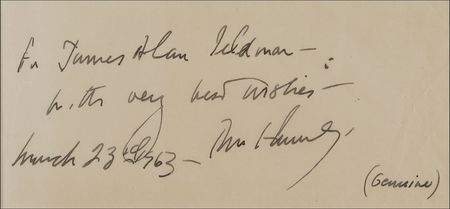 For James Alan Feldman —
with very best wishes —
March 23rd 1963 —
(Genuine)